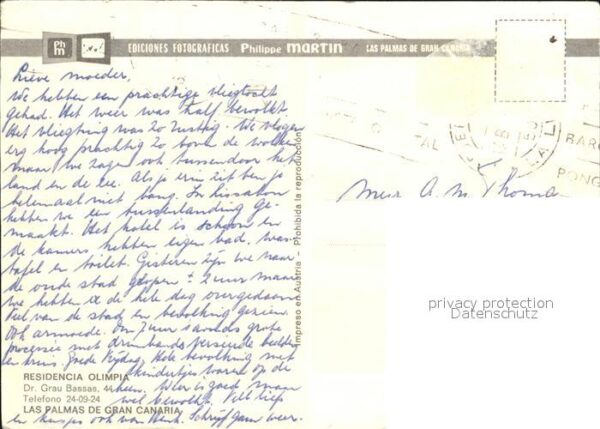 Ph
m
EDICIONES FOTOGRAFICAS Philippe MARTIN LAS PALMAS DE GRAN CANARIA
Lieve moeder,
We hebben een prachtige vliegtocht
gehad. Het weer was half bewolkt
Het vliegtuig was zo rustig. We vlogen
erg hoog prachtig zo boven de wolken
maar we zagen ook tussendoor het
land en de zee. Als je erin zit ben je
helemaal niet bang. In Lissabon
hebben we een tussenlanding ge-
maakt. Het hotel is schoon en
de kamers hebben eigen bad, was-
tafel en toilet. Gisteren zijn we naar
de oude stad gelopen ± 2 uur maar
we hebben er de hele dag over gedaan
Veel van de stad en bevolking gezien.
Ook armoede. Om 7 uur s'avonds grote
processie met drumbands versierde beelden
en kruis. Goede Vrijdag. Hele bevolking met
kindertjes waren op de
been. Weer is goed maar
wel bewolkt. Veel liefs
en kusjes ook van Henk. Schrijf gauw weer.
RESIDENCIA OLIMPIA
Dr. Grau Bassas, 44
Telefono 24-09-24
LAS PALMAS DE GRAN CANARIA
Impreso en Austria - Prohibida la reproducción
TAL
BAR
PONG
Mevr A. M. Thoma
privacy protection
Datenschutz